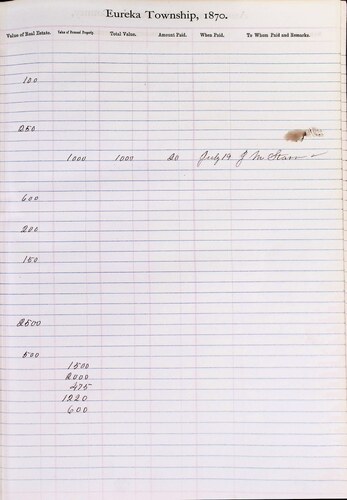 Eureka Township, 1870.
Value of Real Estate. Value of Personal Property. Total Value. Amount Paid. When Paid. To Whom Paid and Remarks.
100
250
1000 1000 20 July 19 J M Starr
600
200
150
2500
500
1500
2000
475
1220
600